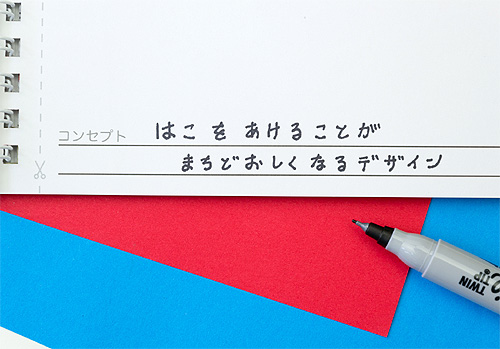 コンセプト はこを あけることが
まちどおしくなるデザイン
TWIN
TIP